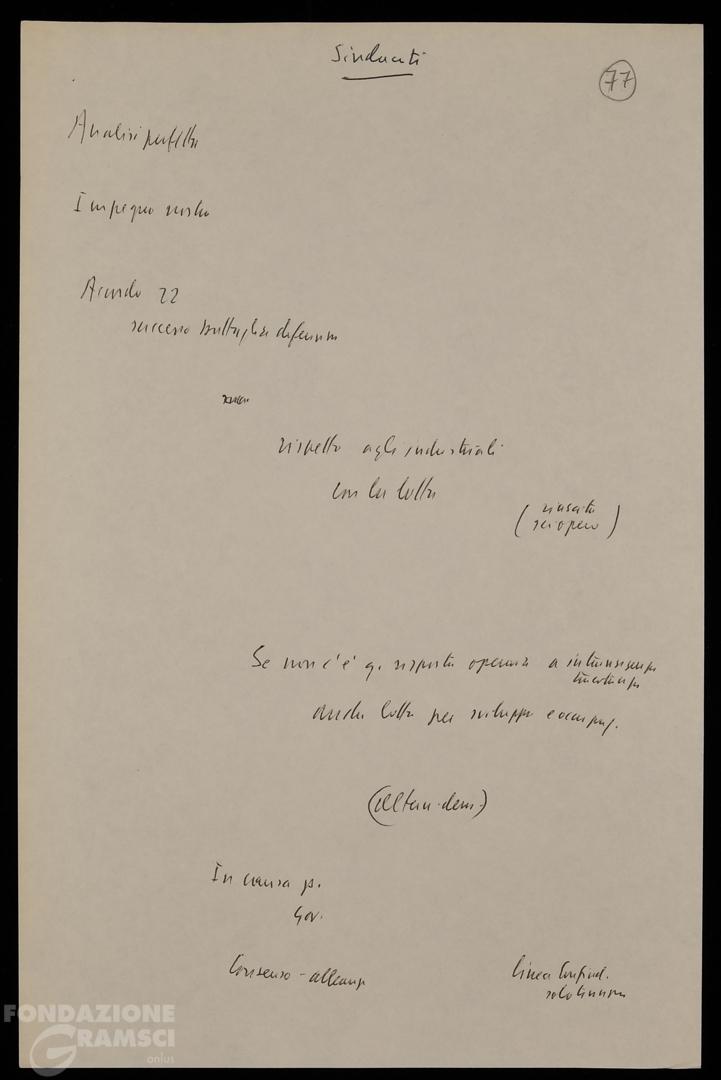 Sindacati
77
Analisi perfetta
Impegno nostro
Accordo 22
successo battaglia difensiva
rispetto agli industriali
con la lotta
(riuscita
sciopero)
Se non c'è q. risposta operaia a intransigenza
anche lotta per sviluppo e occupaz.
(altern. dem.)
In causa p.
Gov.
Consenso - alleanze
linea Confind.
FONDAZIONE
GRAMSCI
onlus